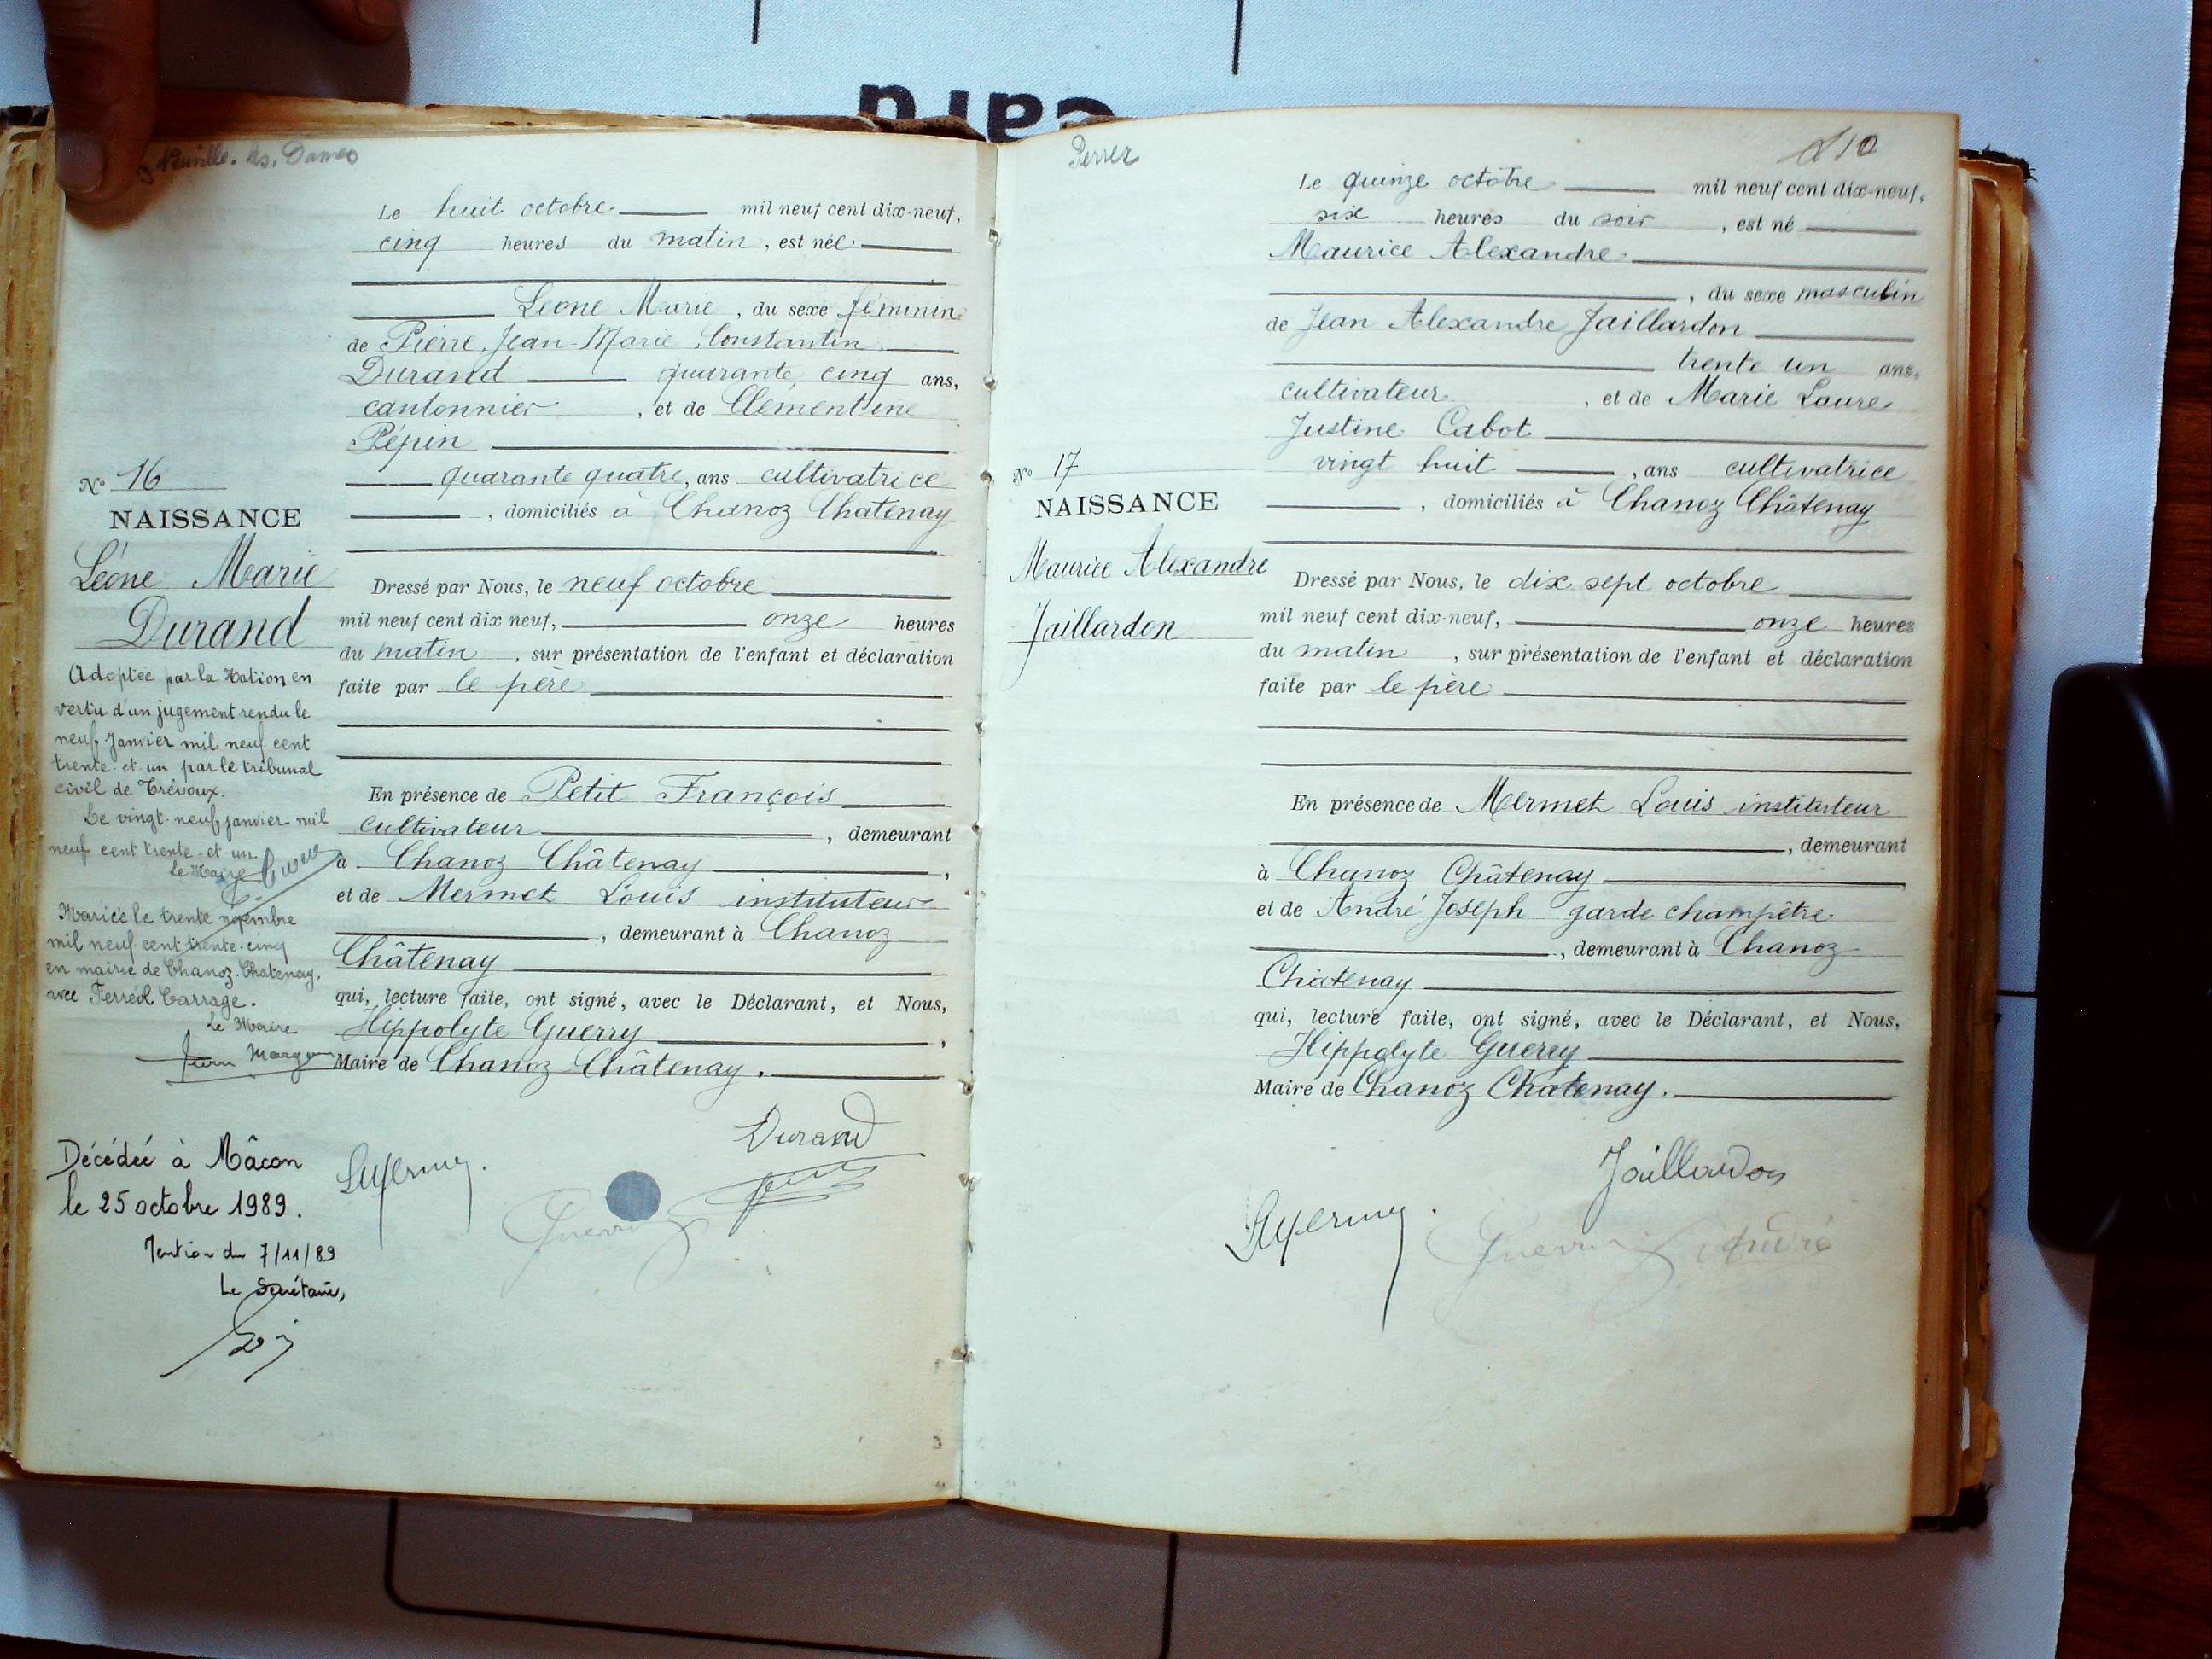 Neuville. les. Dames
Le huit octobre mil neuf cent dix-neuf,
cinq heures du matin, est née
Léone Marie, du sexe féminin
de Pierre Jean-Marie Constantin
Durand quarante cinq ans,
cantonnier, et de Clémentine
Pépin
quarante quatre, ans cultivatrice
, domiciliés à Chanoz Chatenay
N° 16
NAISSANCE
Léone Marie
Durand
Dressé par Nous, le neuf octobre
mil neuf cent dix neuf, onze heures
du matin, sur présentation de l'enfant et déclaration
faite par le père
En présence de Petit François
cultivateur, demeurant
à Chanoz Châtenay,
et de Mermet Louis instituteur
, demeurant à Chanoz
Châtenay
qui, lecture faite, ont signé, avec le Déclarant, et Nous,
Hippolyte Guerry,
Maire de Chanoz Châtenay.
Adoptée par la Nation en
vertu d'un jugement rendu le
neuf Janvier mil neuf cent
trente-et-un par le tribunal
civil de Trévoux.
Le vingt-neuf janvier mil
neuf cent trente-et-un.
Le Maire
Mariée le trente novembre
mil neuf cent trente-cinq
en mairie de Chanoz-Chatenay.
avec Ferréol Carrage.
Le Maire
Durand
Décédée à Mâcon
le 25 octobre 1989.
Mention du 7/11/89
Le Secrétaire,
Perrex
210
Le quinze octobre mil neuf cent dix-neuf,
six heures du soir, est né
Maurice Alexandre
, du sexe masculin
de Jean Alexandre Jaillardon
trente un ans,
cultivateur, et de Marie Laure
Justine Cabot
vingt huit, ans cultivatrice
, domiciliés à Chanoz Châtenay
N° 17
NAISSANCE
Maurice Alexandre
Jaillardon
Dressé par Nous, le dix sept octobre
mil neuf cent dix-neuf, onze heures
du matin, sur présentation de l'enfant et déclaration
faite par le père
En présence de Mermet Louis instituteur
, demeurant
à Chanoz Châtenay
et de André Joseph garde champêtre
, demeurant à Chanoz
Châtenay
qui, lecture faite, ont signé, avec le Déclarant, et Nous,
Hippolyte Guerry
Maire de Chanoz Châtenay.
Jaillardon
André